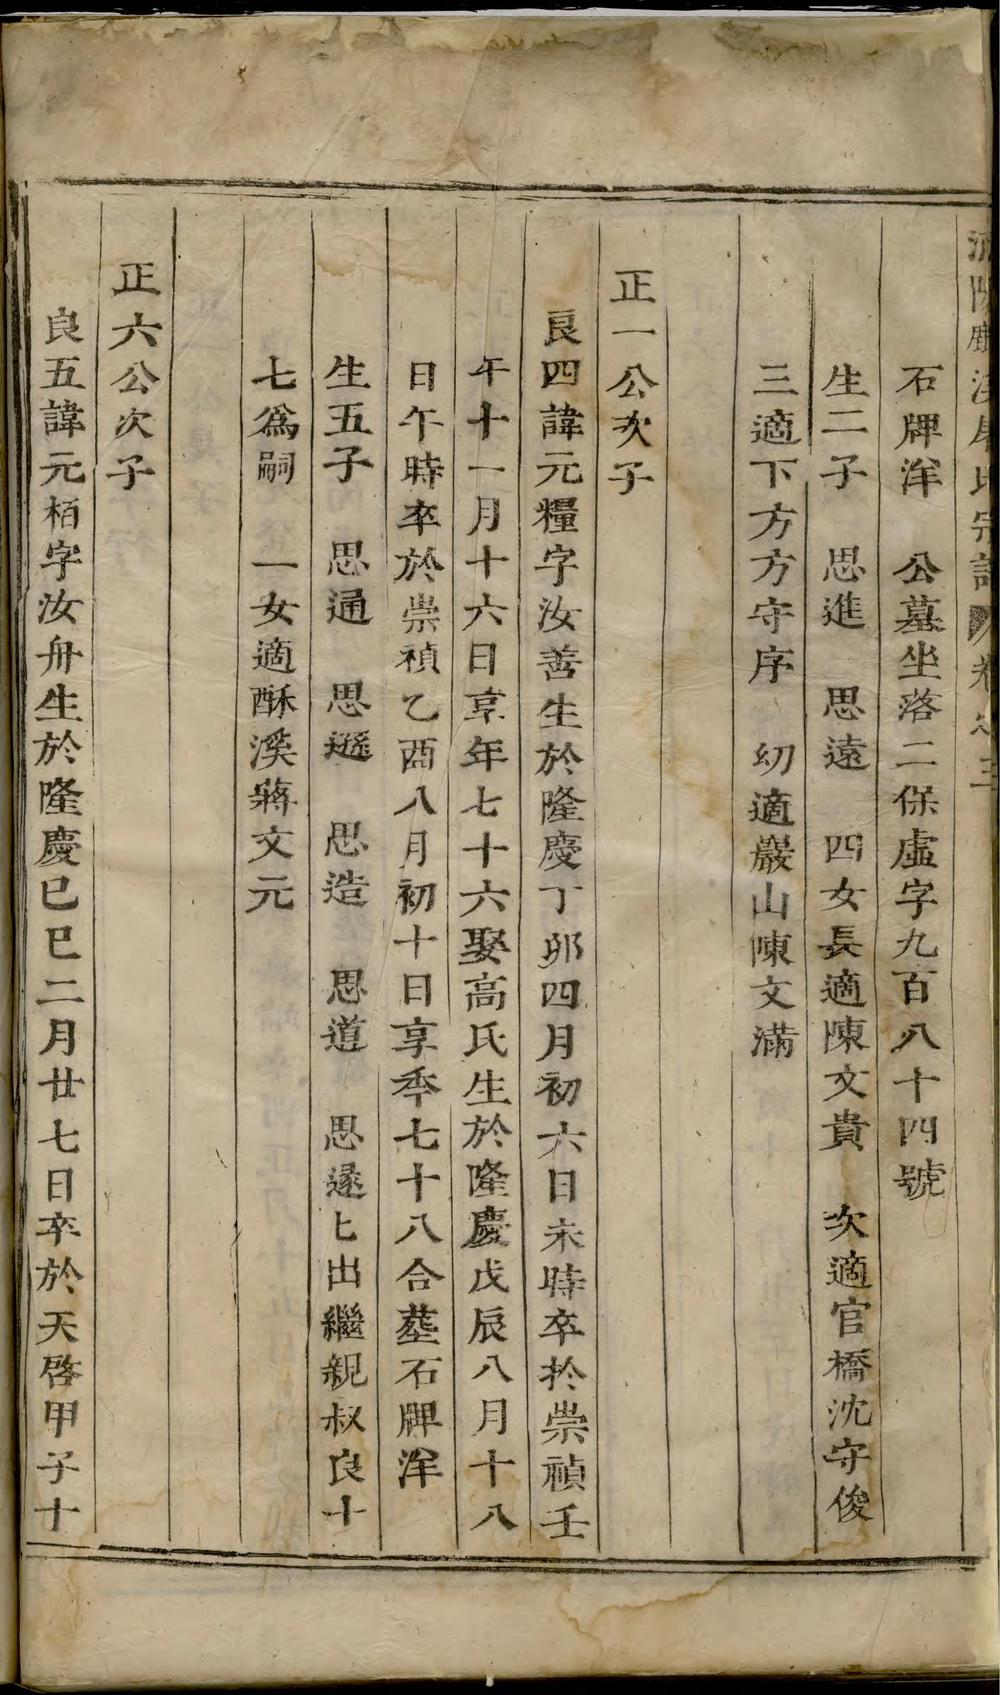 宗譜 卷之三
石牌洋 公墓坐落二保虛字九百八十四號
生二子 思進 思遠 四女長適陳文貴 次適官橋沈守俊
三適下方方守序 幼適巖山陳文滿
正一公次子
良四諱元糧字汝善生於隆慶丁卯四月初六日未時卒於崇禎壬
午十一月十六日享年七十六娶高氏生於隆慶戊辰八月十八
日午時卒於崇禎乙酉八月初十日享秊七十八合塟石牌洋
生五子 思通 思遜 思造 思道 思遂匕出繼親叔良十
七爲嗣 一女適酥溪蔣文元
正六公次子
良五諱元栢字汝舟生於隆慶已巳二月廿七日卒於天啓甲子十